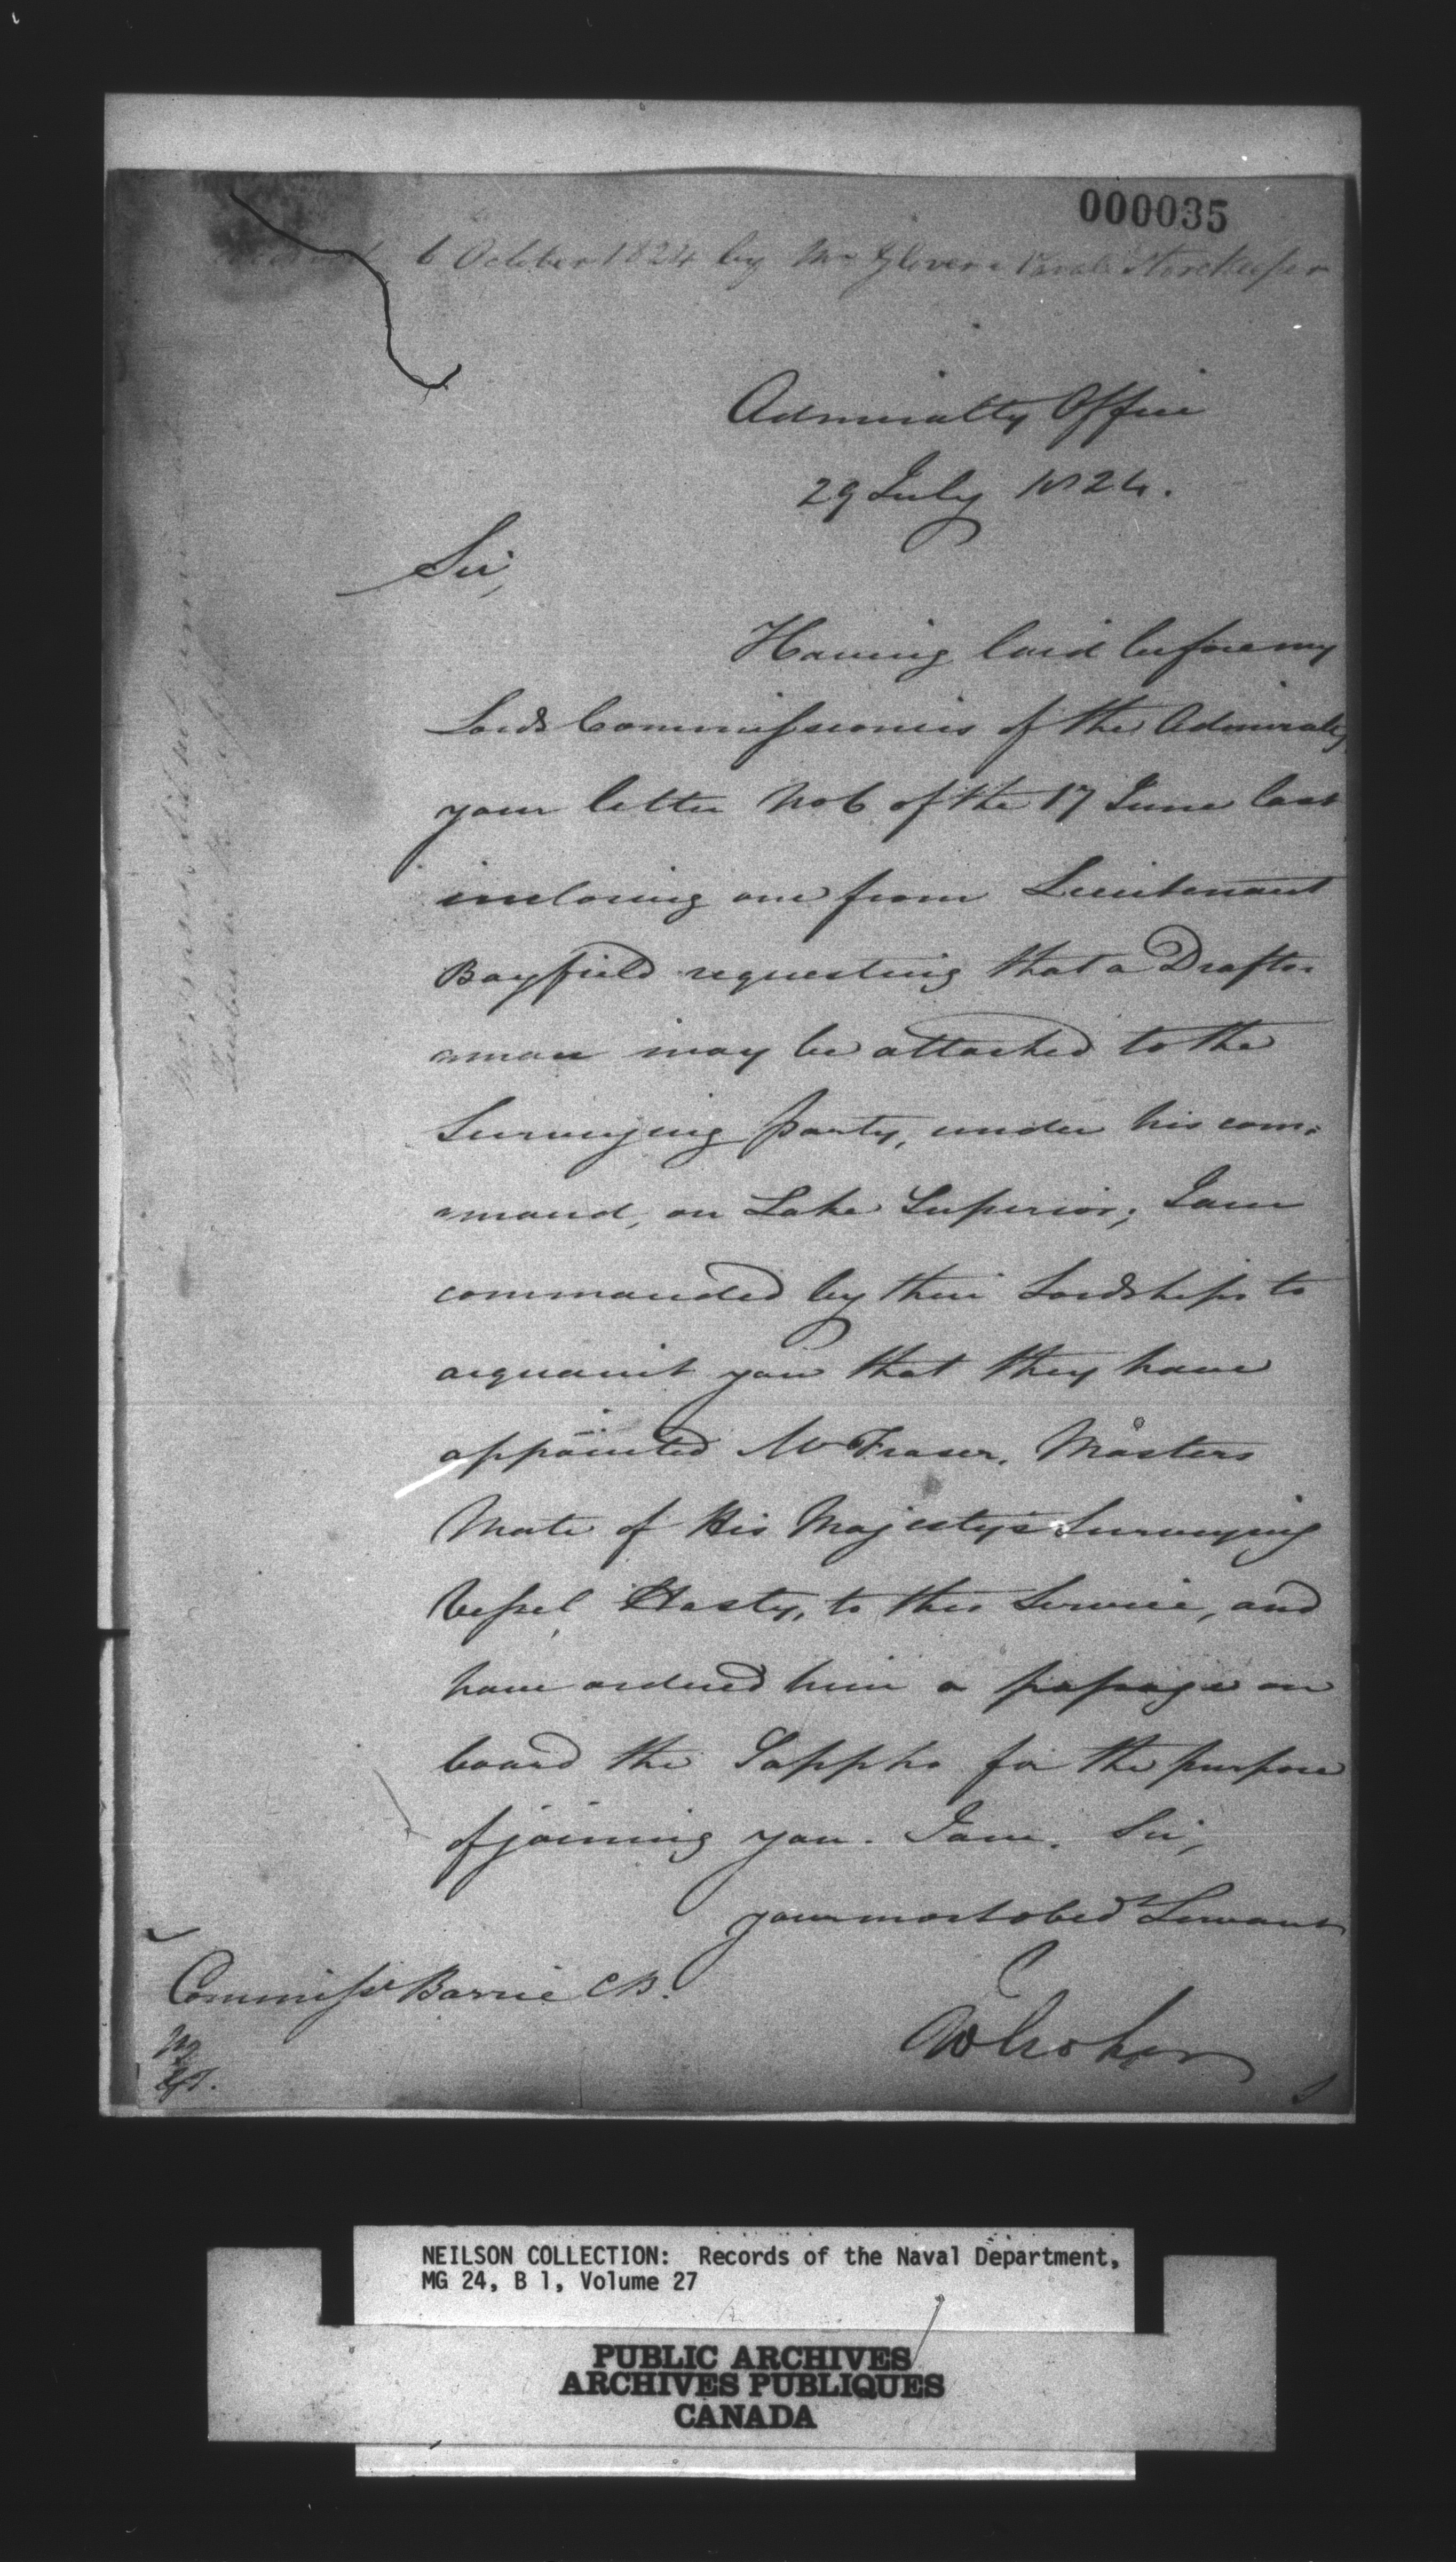 000035
6 October 1824 by Mr Glover Naval Storekeeper
Admiralty Office
29 July 1824.
Sir,
Having laid before my
Lords Commissioners of the Admiralty
your letter No 6 of the 17 June last
inclosing one from Lieutenant
Bayfield requesting that a Drafts=
=man may be attached to the
Surveying party, under his com=
=mand, on Lake Superior; I am
commanded by their Lordships to
acquaint you that they have
appointed Mr Fraser, Masters
Mate of His Majesty's Surveying
Vessel Hasty, to this Service, and
have ordered him a passage on
board the Sappho for the purpose
of joining you. I am, Sir,
your most obedt Servant
Commissr Barrie CB.
JWCroker
NEILSON COLLECTION: Records of the Naval Department,
MG 24, B 1, Volume 27
PUBLIC ARCHIVES
ARCHIVES PUBLIQUES
CANADA